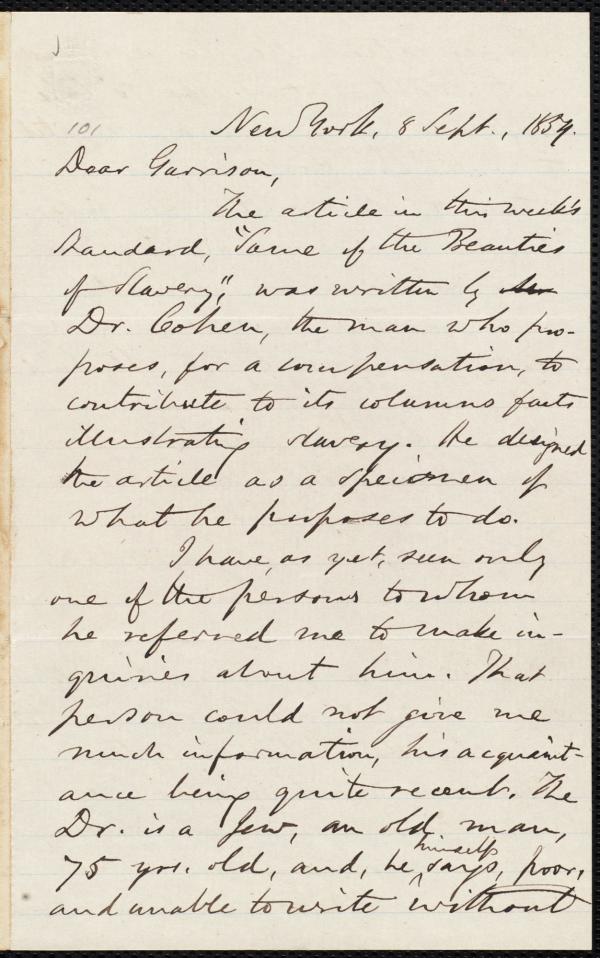 101
New York, 8 Sept., 1859.
Dear Garrison,
The article in this week's
Standard, "Some of the Beauties
of Slavery," was written by
Dr. Cohen, the man who pro-
poses, for a compensation, to
contribute to its columns facts
illustrating slavery. He designed
the article as a specimen of
what he purposes to do.
I have, as yet, seen only
one of the persons to whom
he referred me to make in-
quiries about him. That
person could not give me
much information, his acquaint-
ance being quite recent. The
Dr. is a Jew, an old man,
75 yrs. old, and, he himself says, poor,
and unable to write without